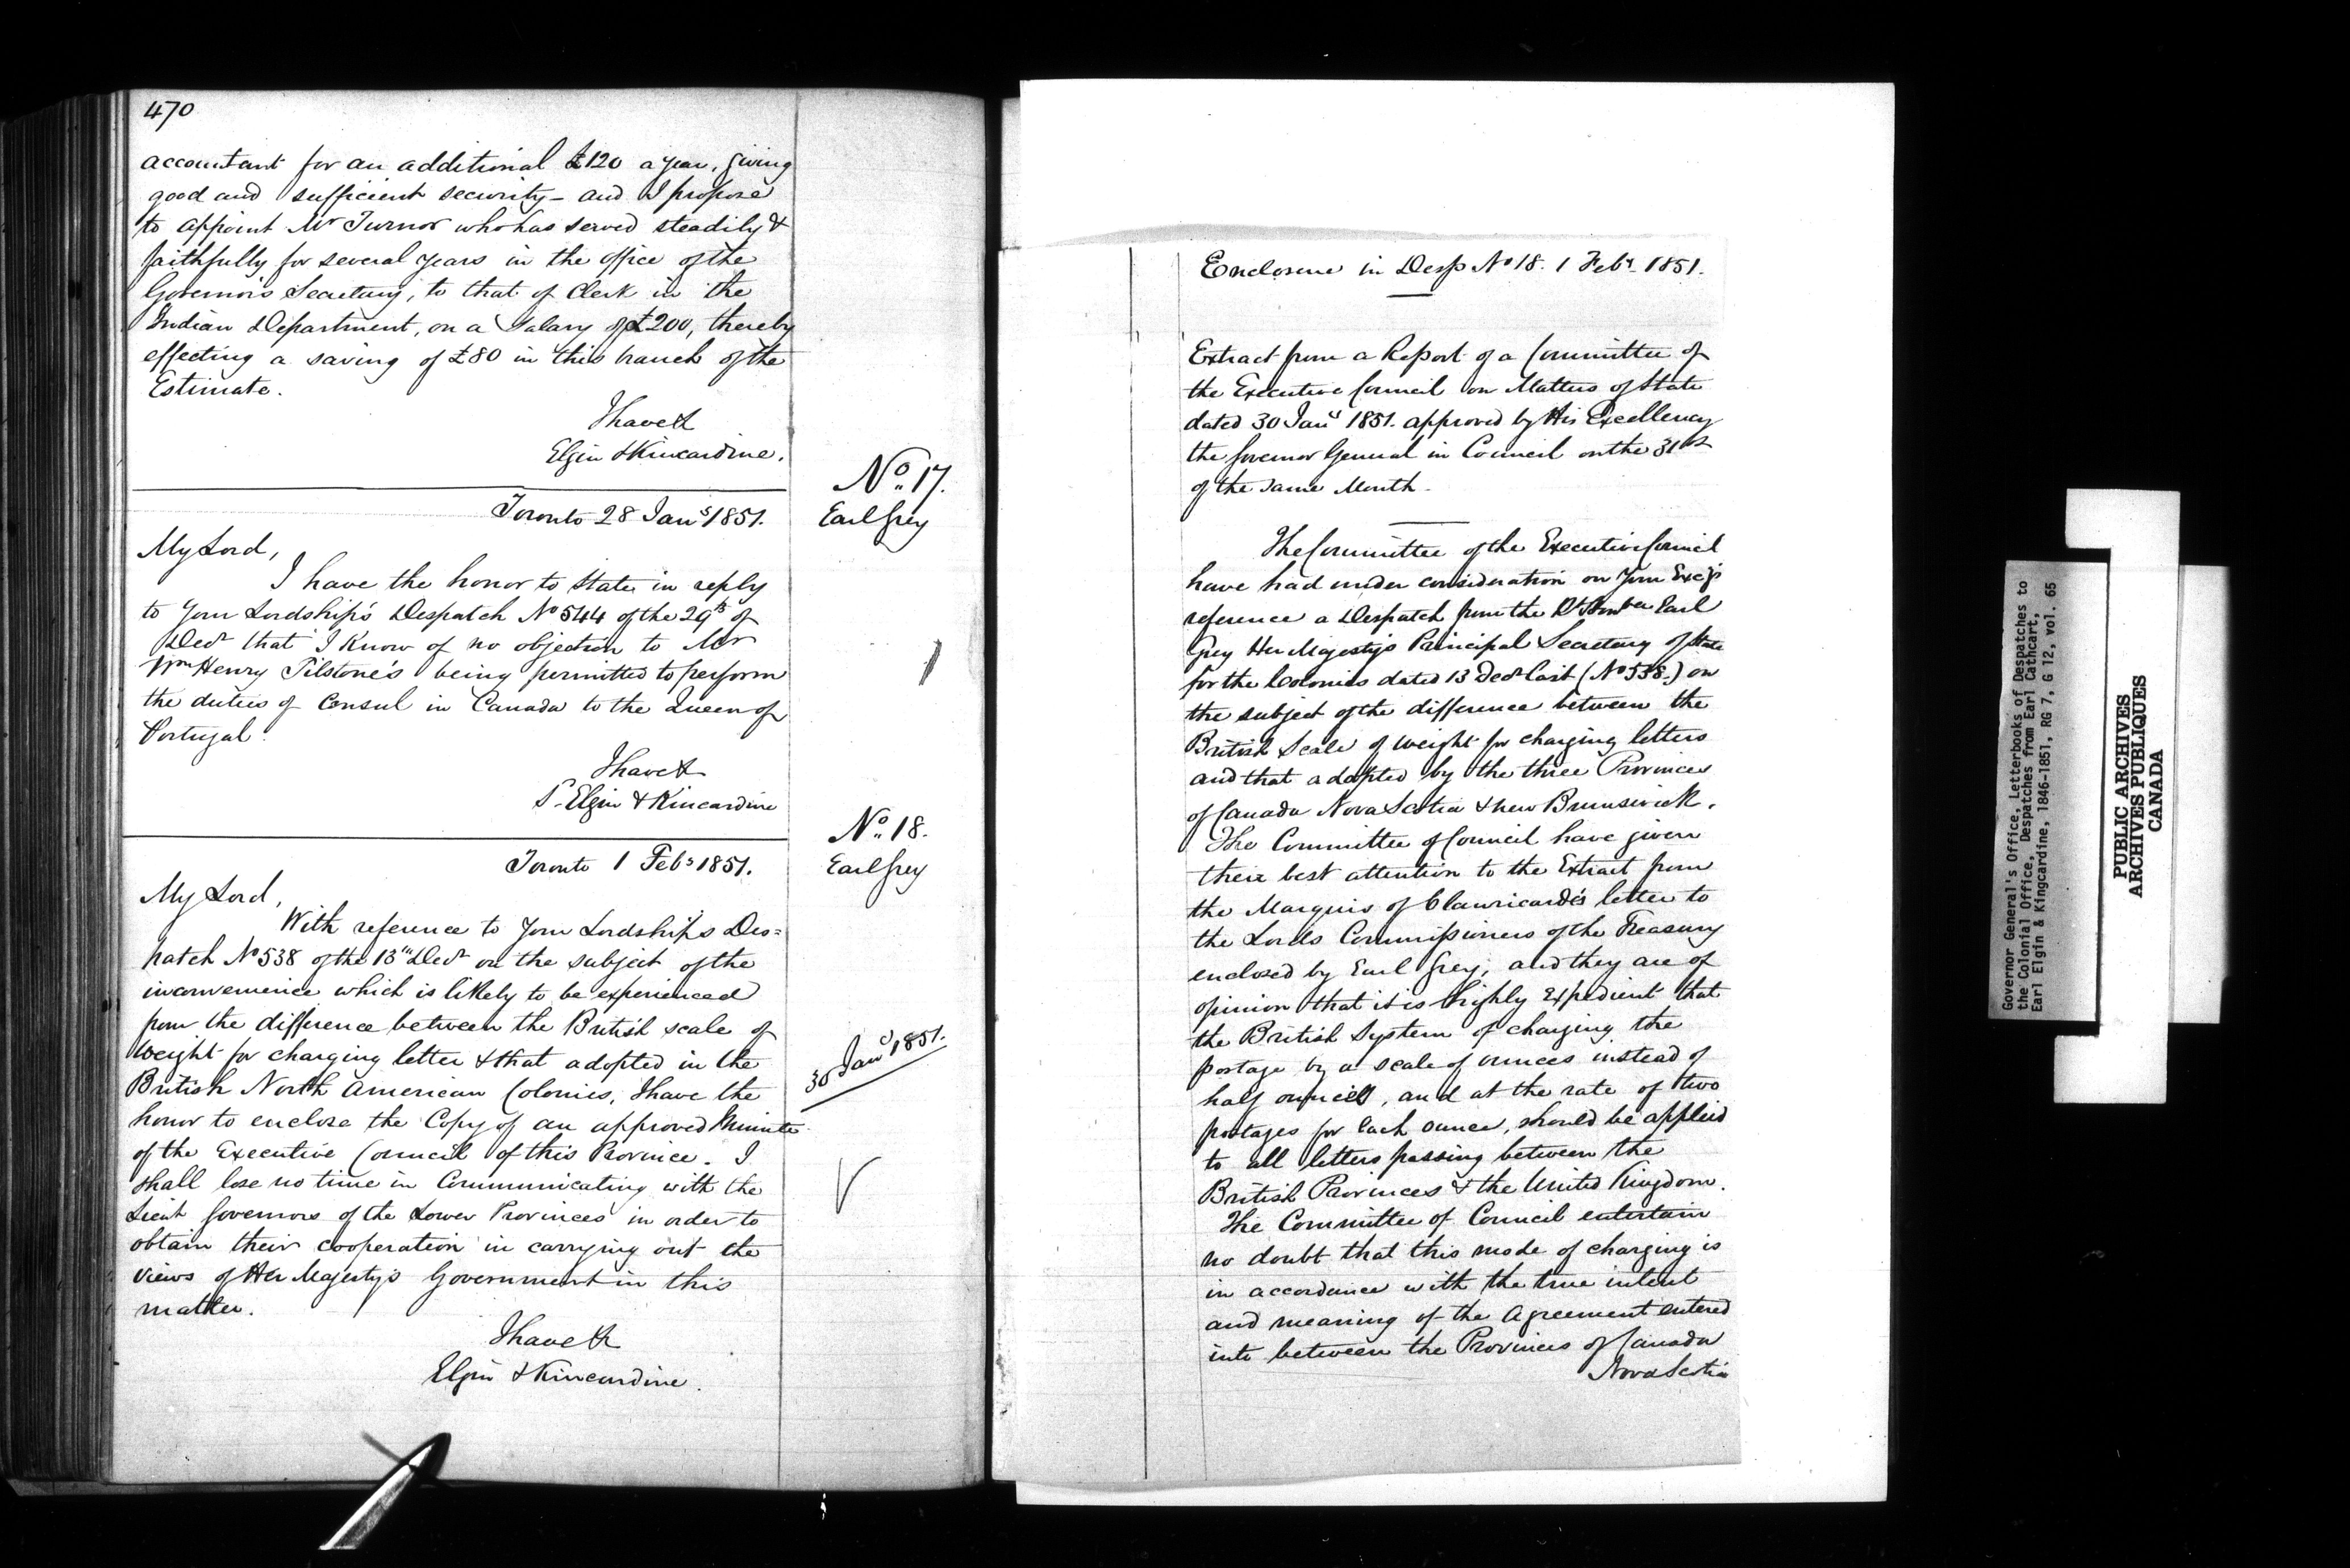 470
accountant for an additional £120 a year, giving
good and sufficient security - and I propose
to appoint Mr Turnor who has served steadily &
faithfully for several years in the office of the
Governor's Secretary, to that of Clerk in the
Indian Department, on a Salary of £200, thereby
effecting a saving of £80 in this branch of the
Estimate.
I have &
Elgin & Kincardine.
No. 17.
Earl Grey
Toronto 28 Jany 1851.
My Lord,
I have the honor to state in reply
to Your Lordship's Despatch No 544 of the 29th of
Decr that I know of no objection to Mr
Wm Henry Tilstone's being permitted to perform
the duties of Consul in Canada to the Queen of
Portugal.
I have &
S. Elgin & Kincardine
No. 18.
Earl Grey
Toronto 1 Feby 1851.
My Lord,
With reference to Your Lordships Des=
patch No 538 of the 13th Decr on the subject of the
inconvenience which is likely to be experienced
from the difference between the British scale of
weight for charging letter & that adopted in the
British North American Colonies, I have the
honor to enclose the Copy of an approved Minute
30 Jany 1851.
of the Executive Council of this Province. I
shall lose no time in Communicating with the
Lieut Governors of the Lower Provinces in order to
obtain their cooperation in carrying out the
views of Her Majesty's Government in this
matter.
I have &
Elgin & Kincardine.
Enclosure in Desp No 18. 1 Feby 1851.
Extract from a Report of a Committee of
the Executive Council on Matters of State
dated 30 Jany 1851. approved by His Excellency
the Governor General in Council on the 31st
of the same Month.
The Committee of the Executive Council
have had under consideration on Your Excy's
reference a Despatch from the Rt Honble Earl
Grey Her Majesty's Principal Secretary of State
for the Colonies dated 13 Decr last (No 538.) on
the subject of the difference between the
British Scale of weight for charging letters
and that adopted by the three Provinces
of Canada Nova Scotia & New Brunswick.
The Committee of Council have given
their best attention to the Extract from
the Marquis of Clanricarde's letter to
the Lords Commissioners of the Treasury
enclosed by Earl Grey, and they are of
opinion that it is highly expedient that
the British System of charging the
postage by a scale of ounces instead of
half ounces, and at the rate of two
postages for each ounce, should be applied
to all letters passing between the
British Provinces & the United Kingdom.
The Committee of Council entertain
no doubt that this mode of charging is
in accordance with the true intent
and meaning of the Agreement entered
into between the Provinces of Canada
Nova Scotia
Governor General's Office, Letterbooks of Despatches to
the Colonial Office, Despatches from Earl Cathcart,
Earl Elgin & Kingcardine, 1846-1851, RG 7, G 12, vol. 65
PUBLIC ARCHIVES
ARCHIVES PUBLIQUES
CANADA